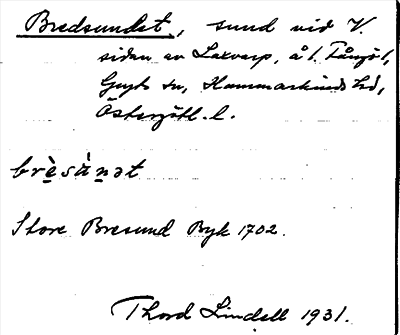 Bredsundet, sund vid V.
sidan av Laxvarp, å l. Fångö l,
Gryts sn, Hammarkinds hd,
Östergötl. l.
brè̱sún̠ət
Store Bresund Byk 1702.
Thord Lindell 1931.